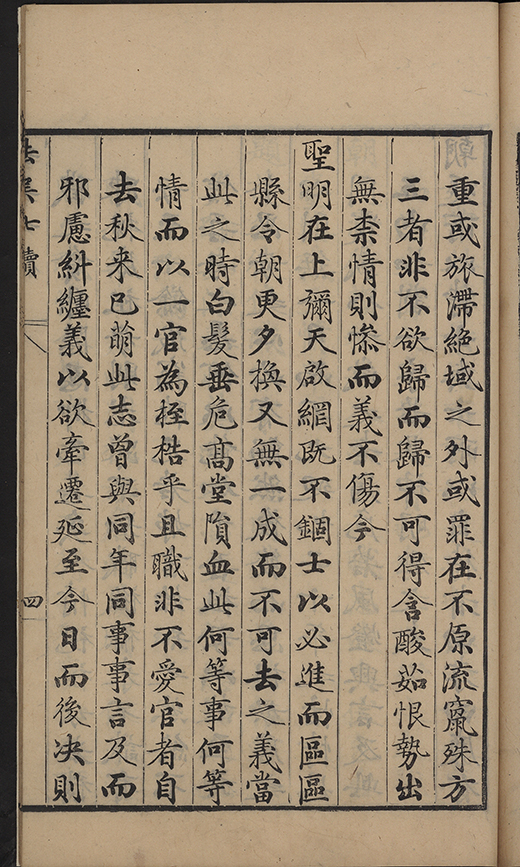 重或旅滯絕域之外或罪在不原流竄殊方
三者非不欲歸而歸不可得含酸茹恨勢出
無柰情則慘而義不傷今
聖明在上彌天啟網既不錮士以必進而區區
縣令朝更夕換又無一成而不可去之義當
此之時白髮垂危高堂隕血此何等事何等
情而以一官為桎梏乎且職非不愛官者自
去秋来已萌此志曾與同年同事事言及而
邪慮糾纏義以欲牽遷延至今日而後决則
去吳七牘
四